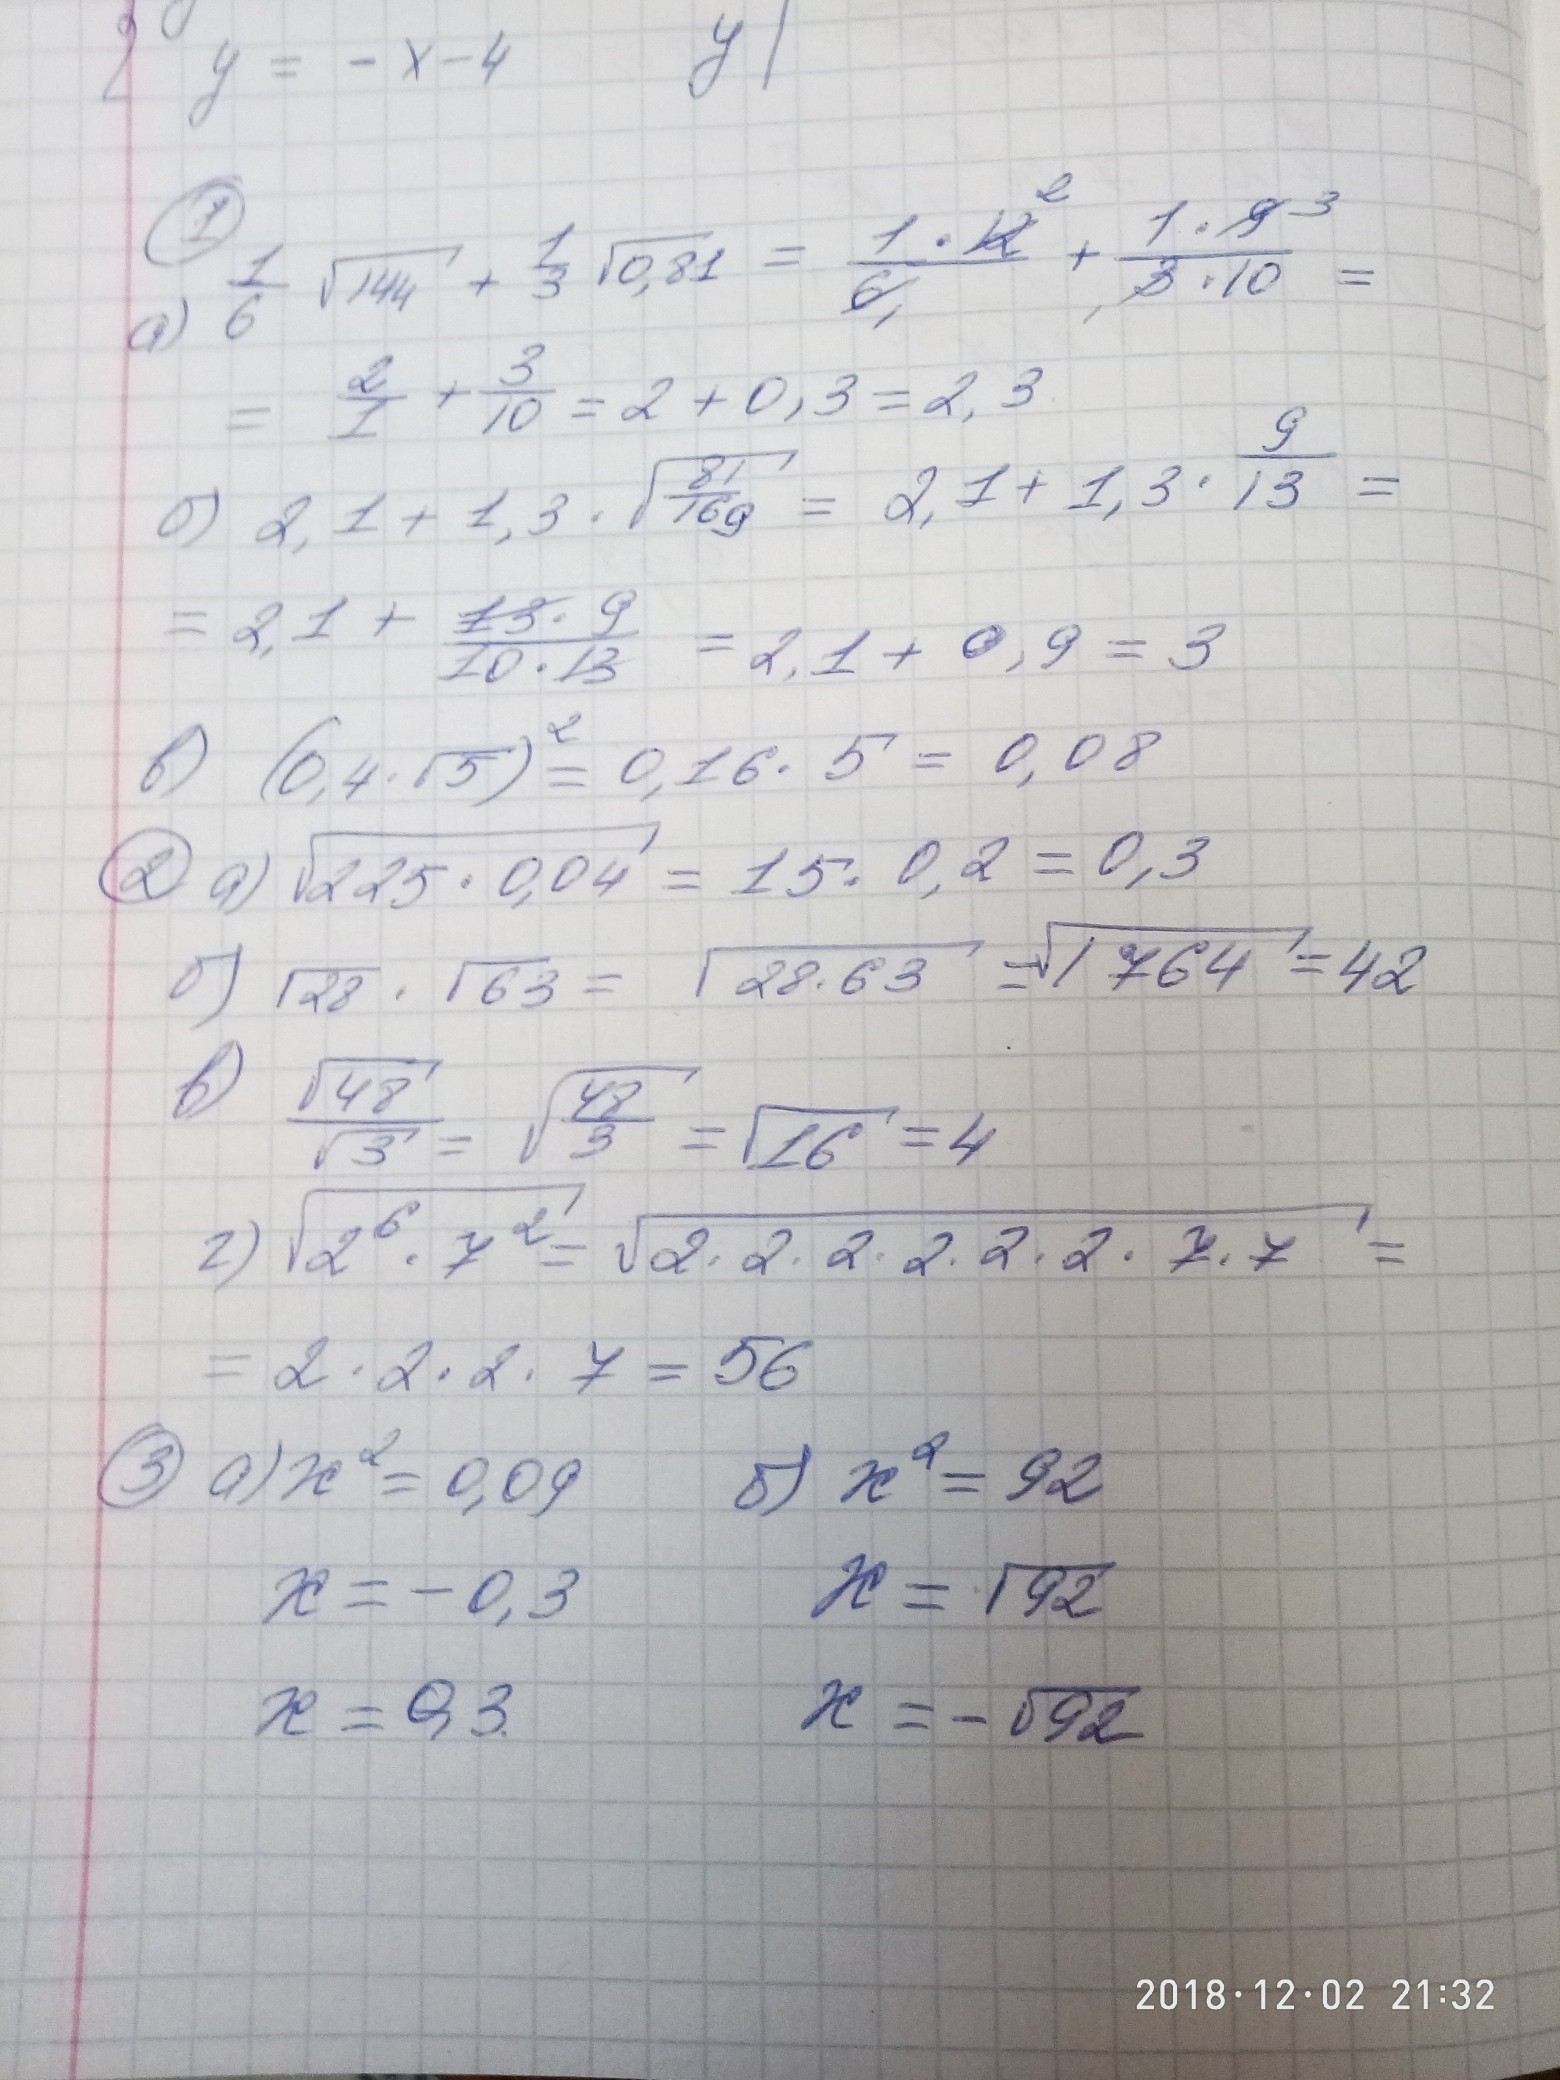 y = -x-4 y
1
а) 1/6 √144 + 1/3 √0,81 = 1·12²/6₁ + 1·9³/₁3·10 =
= 2/1 + 3/10 = 2 + 0,3 = 2,3
б) 2,1 + 1,3 · √81/169 = 2,1 + 1,3 · 9/13 =
= 2,1 + 13·9/10·13 = 2,1 + 0,9 = 3
в) (0,4·√5)² = 0,16·5 = 0,08
2 а) √225·0,04 = 15·0,2 = 0,3
б) √28 · √63 = √28·63 = √1764 = 42
в) √48/√3 = √48/3 = √16 = 4
г) √2⁶·7² = √2·2·2·2·2·2·7·7 =
= 2·2·2·7 = 56
3 а) x² = 0,09 б) x² = 92
x = -0,3 x = √92
x = 0,3 x = -√92
2018·12·02 21:32